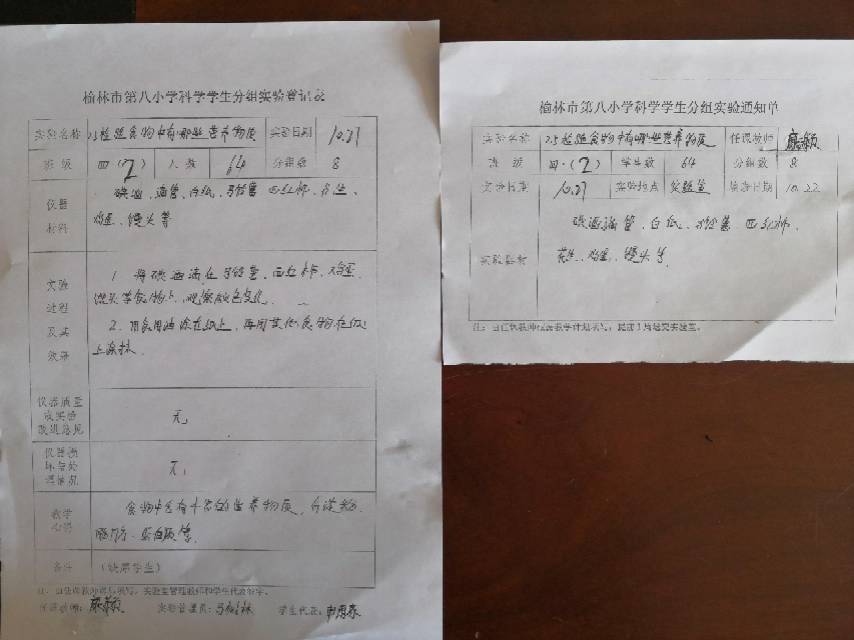 榆林市第八小学科学学生分组实验登记表
实验名称 2.5检验食物中有哪些营养物质 实验日期 10.27
班级 四(2) 人数 64 分组数 8
仪器材料 碘酒、滴管、白纸、马铃薯 西红柿、花生、
鸡蛋、馒头等
实验过程及其效果 1. 将碘酒滴在马铃薯、西红柿、鸡蛋、
馒头等食物上,观察颜色变化。
2. 用食用油涂在纸上,再用其他食物在纸
上涂抹.
仪器质量或实验改进意见 无。
仪器损坏与处理情况 无。
教学心得 食物中含有丰富的营养物质,有淀粉、
脂肪、蛋白质等.
备注 (缺席学生)
注:由任课教师填写,实验室管理教师和学生代表签字。
任课教师: 实验管理员: 学生代表:
榆林市第八小学科学学生分组实验通知单
实验名称 2.5检验食物中有哪些营养物质 任课教师
班级 四·(2) 学生数 64 分组数 8
实验日期 10.27 实验地点 实验室 填验日期 10.22
实验器材 碘酒、滴管、白纸、马铃薯、西红柿、
花生、鸡蛋、馒头等.
注:由任课教师根据教学计划填写,提前1周送交实验室。